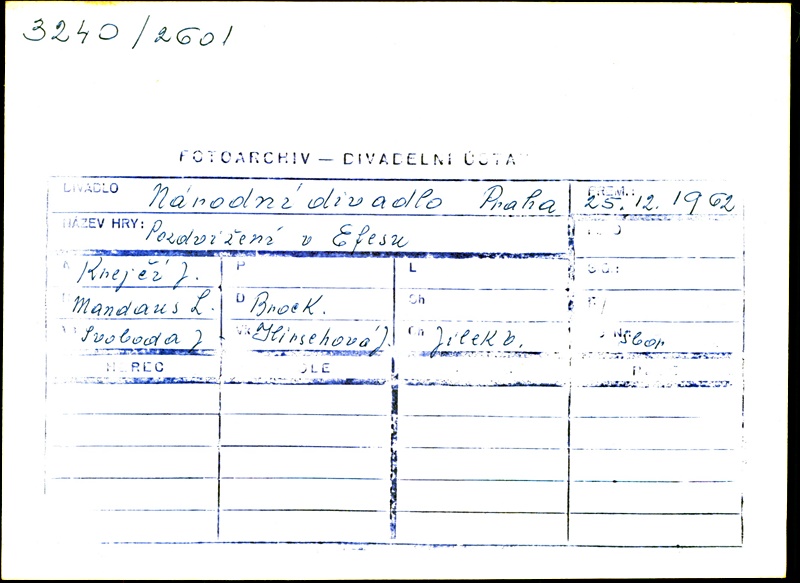 3240/2601
FOTOARCHIV — DIVADELNÍ ÚSTA
DIVADLO Národní divadlo Praha PREM.: 25.12.1962
NÁZEV HRY: Pozdvižení v Efesu
Krejčí J. P L
Mandaus L. D Brock. Sh
Svoboda J. Vk Hirschová J. Ch Jílek b. Sbor
HEREC